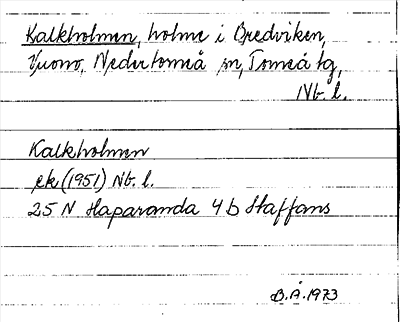 Kalkholmen, holme i Bredviken,
Vuono, Nedertorneå sn, Torneå tg,
Nb. l.
Kalkholmen
ek (1951) Nb. l.
25 N Haparanda 4 b Staffans
B.Å. 1973